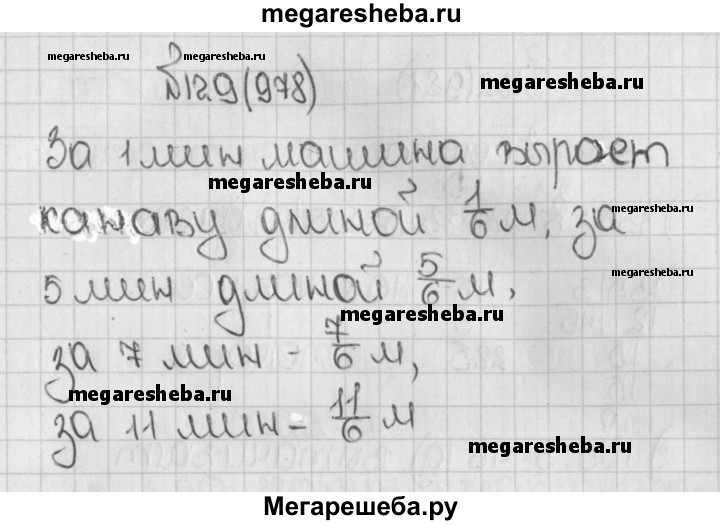 megaresheba.ru
megaresheba.ru megaresheba.ru
№129(978) megaresheba.ru
За 1 мин машина выроет
megaresheba.ru
канаву длиной 1/6 м, за megaresheba.ru
5 мин длиной 5/6 м, megaresheba.ru
megaresheba.ru
за 7 мин - 7/6 м,
megaresheba.ru
за 11 мин - 11/6 м
megaresheba.ru
Мегарешеба.ру